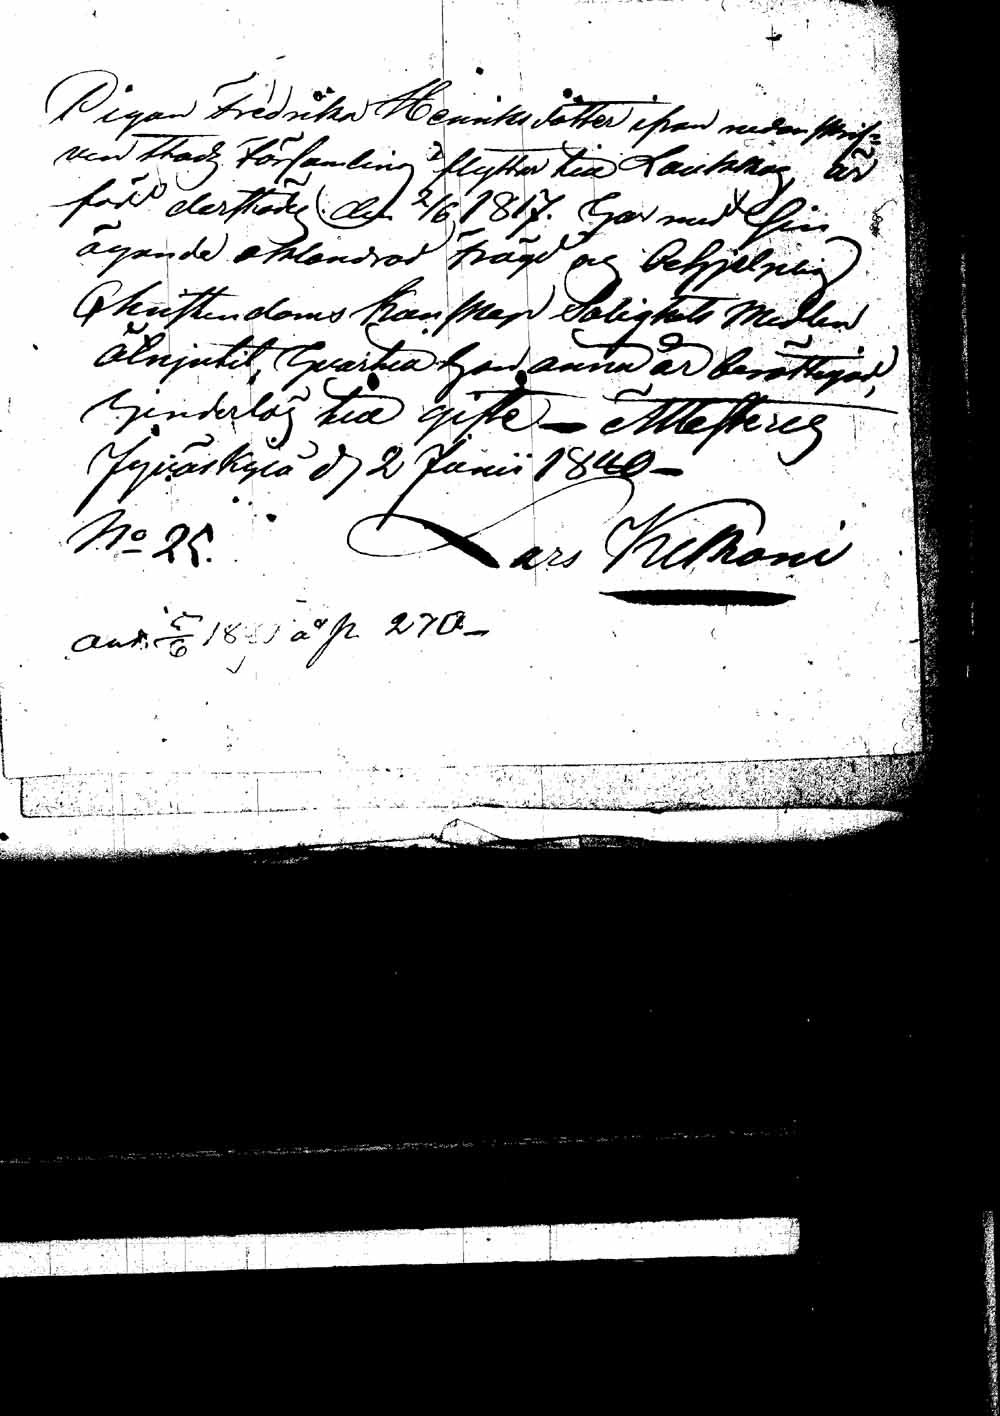 Pigan Fredrika Henriksdotter ifran nedanskrif=
ven Stads Församling flyttar till Laukkas, är
föd derstädes den 2/6 1817. Har med sin
ägande oklandrad frägd og behjelplig
Christendoms kunskap Salighets Medlen
åtnjutit, hvartill hon ännu är berättigad,
hinderlös till gifte – Attesterer
Jyväskylä d 2 Junii 1840 –
No 25. Lars Kelhoni
5/6 18 å p. 270 –